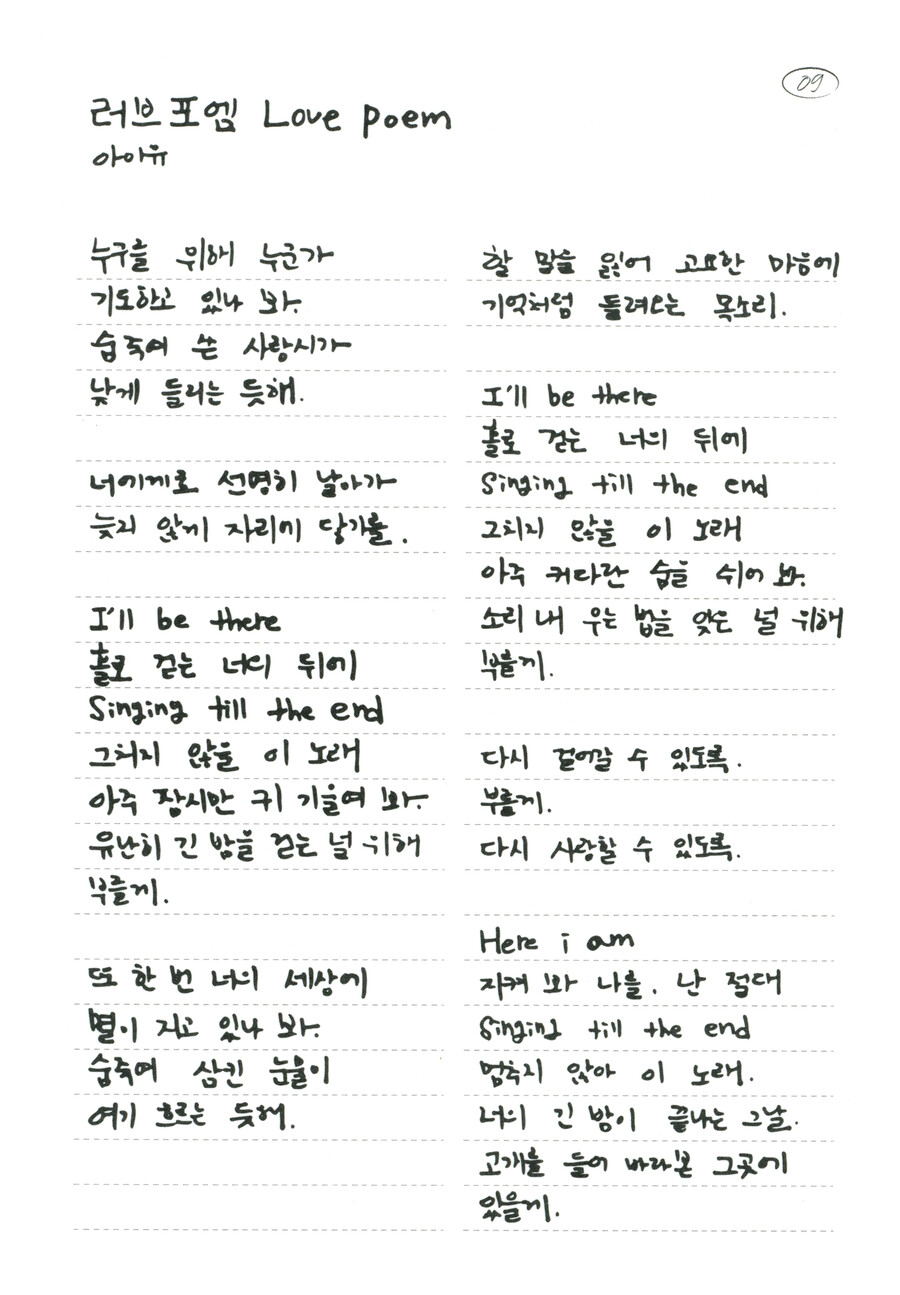 09
러브포엠 Love poem
아이유
누구를 위해 누군가
기도하고 있나 봐.
숨죽여 쓴 사랑시가
낮게 들리는 듯해.
너에게로 선명히 날아가
늦지 않게 자리에 닿기를.
I'll be there
홀로 걷는 너의 뒤에
Singing till the end
그치지 않을 이 노래
아주 잠시만 귀 기울여 봐.
유난히 긴 밤을 걷는 널 위해
부를게.
또 한 번 너의 세상에
별이 지고 있나 봐.
숨죽여 삼킨 눈물이
여기 흐르는 듯해.
할 말을 잃어 고요한 마음에
기억처럼 들려오는 목소리.
I'll be there
홀로 걷는 너의 뒤에
Singing till the end
그치지 않을 이 노래
아주 커다란 숨을 쉬어 봐.
소리 내 우는 법을 잊은 널 위해
부를게.
다시 걸어갈 수 있도록.
부를게.
다시 사랑할 수 있도록.
Here i am
지켜 봐 나를. 난 절대
Singing till the end
멈추지 않아 이 노래.
너의 긴 밤이 끝나는 그날.
고개를 들어 바라본 그곳에
있을게.